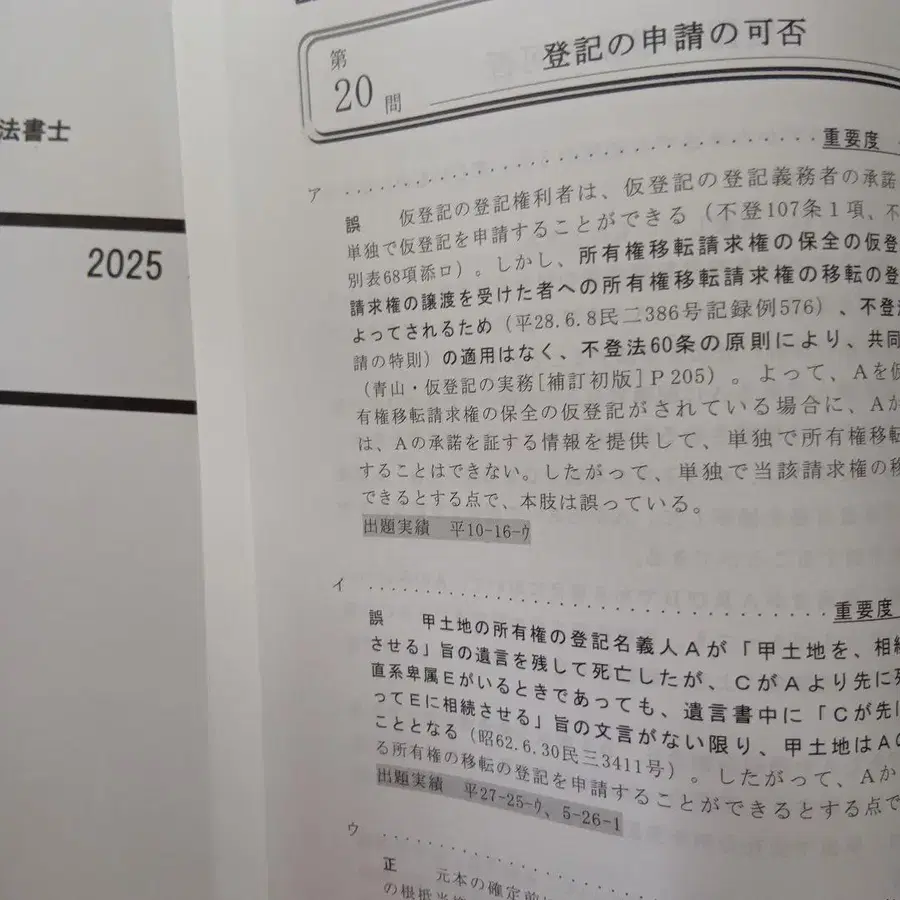 法書士
2025
第20問
登記の申請の可否
重要度
ア
誤 仮登記の登記権利者は、仮登記の登記義務者の承諾
単独で仮登記を申請することができる（不登107条１項、不
別表68項添ロ）。しかし、所有権移転請求権の保全の仮登
請求権の譲渡を受けた者への所有権移転請求権の移転の登
よってされるため（平28.6.8民二386号記録例576）、不登
請の特則）の適用はなく、不登法60条の原則により、共同
（青山・仮登記の実務[補訂初版]Ｐ205）。よって、Ａを仮
有権移転請求権の保全の仮登記がされている場合に、Ａか
は、Ａの承諾を証する情報を提供して、単独で所有権移転
することはできない。したがって、単独で当該請求権の移
できるとする点で、本肢は誤っている。
出題実績 平10-16-ウ
イ
重要度
誤 甲土地の所有権の登記名義人Ａが「甲土地を、相続
させる」旨の遺言を残して死亡したが、ＣがＡより先に死
直系卑属Ｅがいるときであっても、遺言書中に「Ｃが先に
ってＥに相続させる」旨の文言がない限り、甲土地はＡの
こととなる（昭62.6.30民三3411号）。したがって、Ａか
る所有権の移転の登記を申請することができるとする点で
出題実績 平27-25-ウ、5-26-1
ウ
正 元本の確定前
の根抵当権